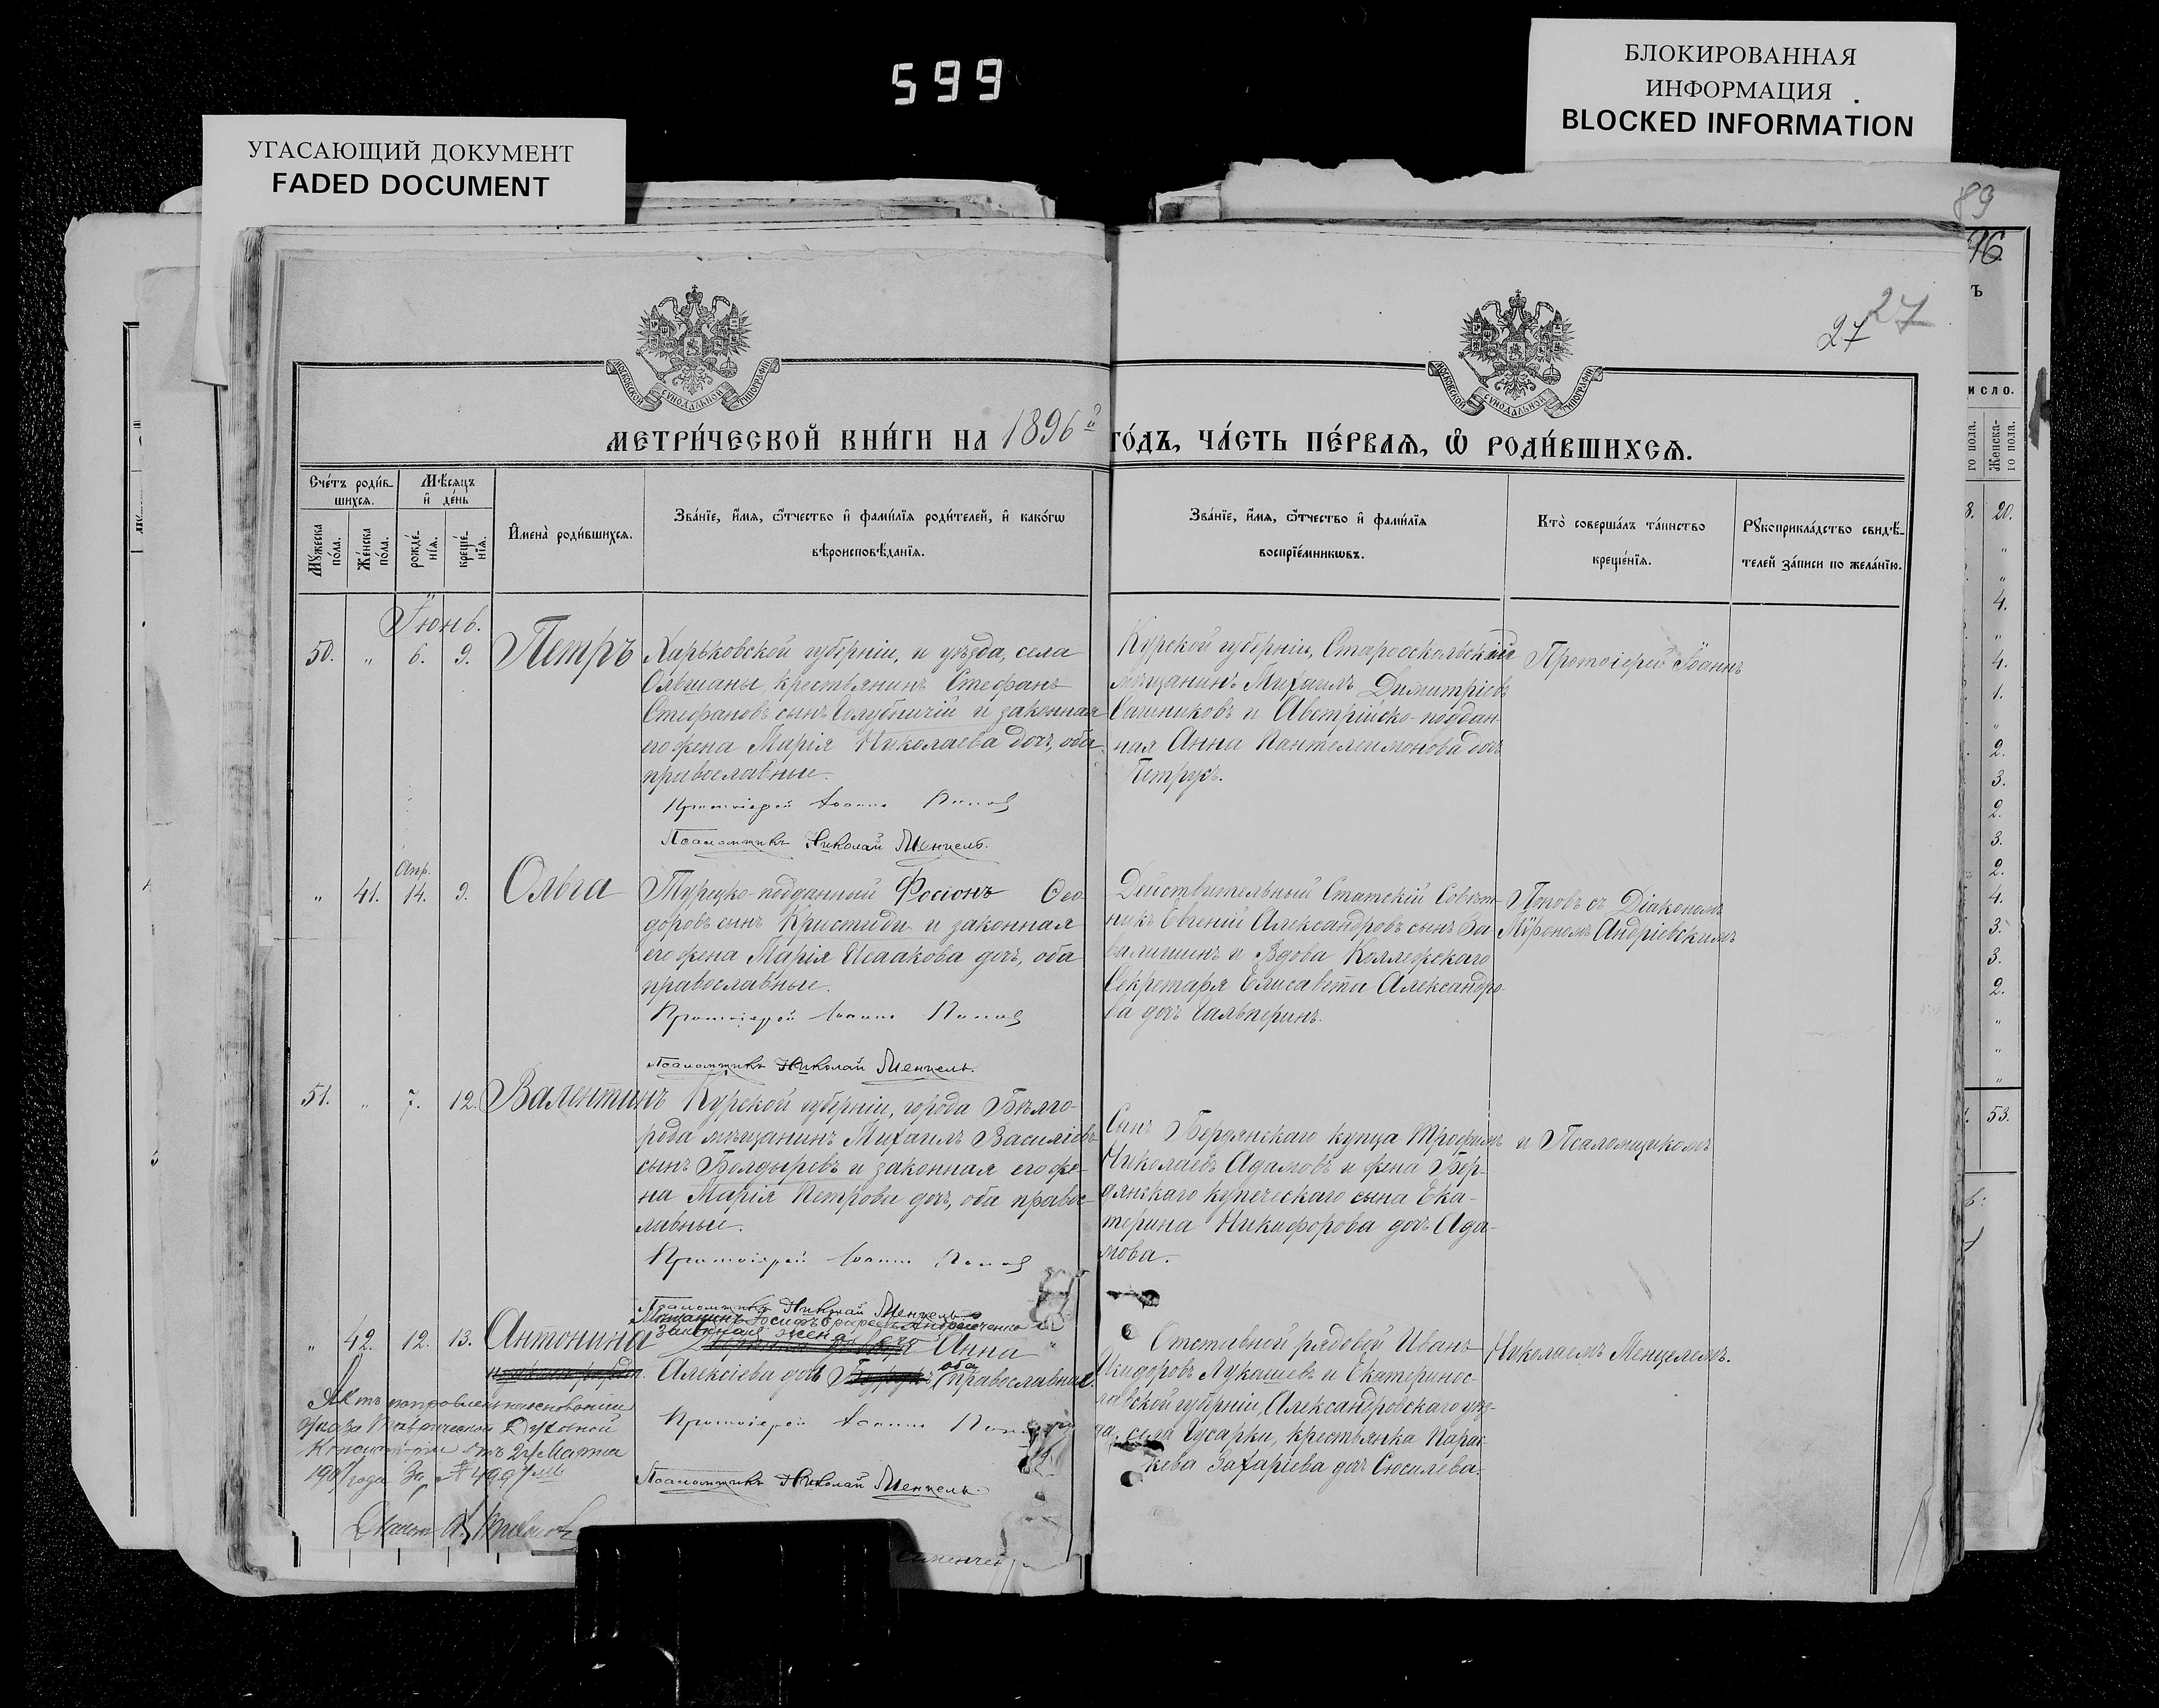 599
БЛОКИРОВАННАЯ
ИНФОРМАЦИЯ
BLOCKED INFORMATION
УГАСАЮЩИЙ ДОКУМЕНТ
FADED DOCUMENT
89
96
27
27
МОСКОВСКОЙ СѴНОДАЛЬНОЙ ТИПОГРАФІИ
МОСКОВСКОЙ СѴНОДАЛЬНОЙ ТИПОГРАФІИ
МЕТРИ́ЧЕСКОЙ КНИ́ГИ НА 1896й ГО́ДЪ, ЧА́СТЬ ПЕ́РВАѦ, Ѡ҆ РОДИ́ВШИХСѦ.
Сче́тъ роди́в-
шихсѧ.
Мѣ́сѧцъ
и҆ де́нь
Мꙋ́жеска
по́ла.
Же́нска
по́ла.
рожде́-
нїѧ.
креще́-
нїѧ.
И҆мена̀ роди́вшихсѧ.
Зва́нїе, и҆́мѧ, ѻ҆́тчество и҆ фами́лїѧ роди́телей, и҆ како́гѡ
вѣроисповѣ́данїѧ.
Зва́нїе, и҆́мѧ, ѻ҆́тчество и҆ фами́лїѧ
воспрїе́мникѡвъ.
Кто̀ соверша́лъ та́инство
креще́нїѧ.
Рꙋкоприкла́дство свидѣ́-
телей за́писи по жела́нїю.
Іюнь.
50. " 6. 9. Петръ
Харьковской губерніи, и уѣзда, села
Ольшаны, крестьянинъ Стефанъ
Стефановъ сынъ Голубничій и законная
его жена Марія Николаева дочь, оба
православные.
Протоіерей Іоаннъ Поповъ
Псаломщикъ Николай Менцель.
Курской губерніи, Старооскольскій
мѣщанинъ Михаилъ Димитріевъ
Сотниковъ и Австрійско-поддан-
ная Анна Пантелеимонова дочь
Петрусъ.
Протоіерей Іоаннъ
" 41. Апр. 14. 9. Ольга
Турецко-подданный Фосіонъ Ѳео-
доровъ сынъ Кристиди и законная
его жена Марія Исаакова дочь, оба
православные.
Протоіерей Іоаннъ Поповъ
Псаломщикъ Николай Менцель.
Действительный Статскій Совѣт-
никъ Евгеній Александровъ сынъ За-
валишинъ и Вдова Коллежскаго
Секретаря Елисавета Александро-
ва дочь Гальперинъ.
Поповъ съ Діакономъ
Андріевскимъ
51. " 7. 12. Валентинъ
Курской губерніи, города Бѣлго-
рода мѣщанинъ Михаилъ Василіевъ
сынъ Болдыревъ и законная его же-
на Марія Петрова дочь, оба правос-
лавные.
Протоіерей Іоаннъ Поповъ
Псаломщикъ Николай Менцель
Сынъ Бердянскаго купца Трофимъ
Николаевъ Адамовъ и жена Бер-
дянскаго купеческаго сына Ека-
терина Никифорова дочь Ада-
мова.
и Псаломщикомъ
" 42. 12. 13. Антонина
Мѣщанинъ Іосифъ
законная жена его Анна
Алексіева дочь оба православные.
Протоіерей Іоаннъ
Псаломщикъ Николай Менцель.
Отставной рядовой Иванъ
Исидоровъ Лукашевъ и Екатеринос-
лавской губерніи, Александровскаго уѣз-
да, села Гусарки, крестьянка Парас-
кева Захаріева дочь Сюсилева.
Николаемъ Менцелемъ.
Актъ исправленъ на основаніи
указа Таврической Духовной
Консисторіи отъ 24 Марта
года за №
исло.
го пола.
Женска-
го пола.
8. 20.
"
"
4.
"
4.
1.
"
2.
3.
2.
3.
2.
4.
3.
3.
2.
"
"
"
53.